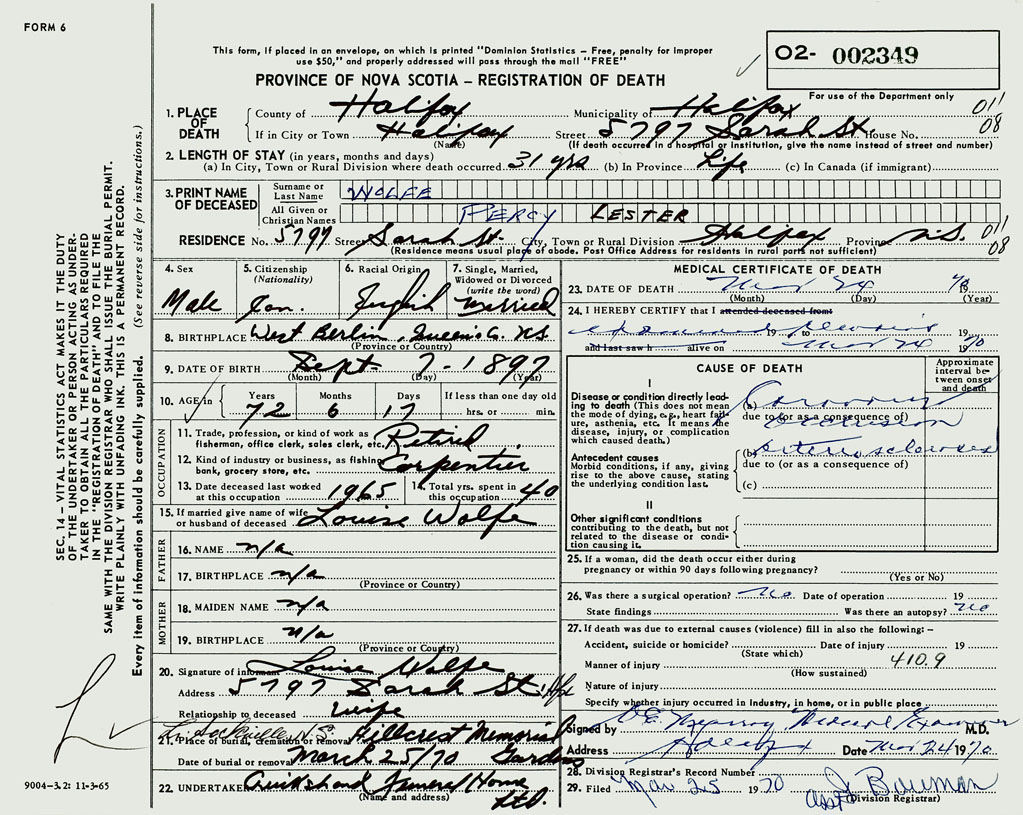 FORM 6
This form, if placed in an envelope, on which is printed "Dominion Statistics – Free, penalty for improper
use $50," and properly addressed will pass through the mail "FREE"
PROVINCE OF NOVA SCOTIA – REGISTRATION OF DEATH
O2- 002349
For use of the Department only
1. PLACE OF DEATH County of Halifax Municipality of Halifax 011
If in City or Town Halifax Street 5797 Sarah St. House No. 08
(Name) (If death occurred in a hospital or institution, give the name instead of street and number)
2. LENGTH OF STAY (in years, months and days)
(a) In City, Town or Rural Division where death occurred 31 yrs (b) In Province Life (c) In Canada (if immigrant)
3. PRINT NAME OF DECEASED Surname or Last Name WOLFE
All Given or Christian Names PERCY LESTER
RESIDENCE No. 5797 Street Sarah St. City, Town or Rural Division Halifax Province N.S. 011 08
(Residence means usual place of abode. Post Office Address for residents in rural parts not sufficient)
4. Sex Male
5. Citizenship (Nationality) Can.
6. Racial Origin English
7. Single, Married, Widowed or Divorced (write the word) Married
8. BIRTHPLACE West Berlin, Queens Co. NS
(Province or Country)
9. DATE OF BIRTH Sept. 7 - 1897
(Month) (Day) (Year)
10. AGE in Years 72 Months 6 Days 17 If less than one day old hrs. or min.
OCCUPATION
11. Trade, profession, or kind of work as fisherman, office clerk, sales clerk, etc. Retired
12. Kind of industry or business, as fishing, bank, grocery store, etc. Carpentier
13. Date deceased last worked at this occupation 1965 14. Total yrs. spent in this occupation 40
15. If married give name of wife or husband of deceased Louise Wolfe
FATHER
16. NAME n/a
17. BIRTHPLACE n/a
(Province or Country)
MOTHER
18. MAIDEN NAME n/a
19. BIRTHPLACE n/a
(Province or Country)
20. Signature of informant Louise Wolfe
Address 5797 Sarah St. Hfx
Relationship to deceased wife
Lr. Sackville, N.S.
21. Place of burial, cremation or removal Hillcrest Memorial Gardens
Date of burial or removal March 25/70
22. UNDERTAKER Cruikshank Funeral Home Ltd.
(Name and address)
MEDICAL CERTIFICATE OF DEATH
23. DATE OF DEATH Mar 24 70
(Month) (Day) (Year)
24. I HEREBY CERTIFY that I attended deceased from
19 to 19
and last saw h alive on Mar 24 1970
CAUSE OF DEATH
Approximate interval between onset and death
I
Disease or condition directly leading to death (This does not mean the mode of dying, e.g., heart failure, asthenia, etc. It means the disease, injury, or complication which caused death.)
(a) Coronary occlusion
due to (or as a consequence of)
Antecedent causes
Morbid conditions, if any, giving rise to the above cause, stating the underlying condition last.
(b) arteriosclerosis
due to (or as a consequence of)
(c)
II
Other significant conditions contributing to the death, but not related to the disease or condition causing it.
25. If a woman, did the death occur either during pregnancy or within 90 days following pregnancy?
(Yes or No)
26. Was there a surgical operation? No Date of operation 19
State findings Was there an autopsy? No
27. If death was due to external causes (violence) fill in also the following: –
Accident, suicide or homicide? Date of injury 19
(State which) 410.9
Manner of injury
(How sustained)
Nature of injury
Specify whether injury occurred in industry, in home, or in public place
Signed by Medical Examiner M.D.
Address Halifax Date Mar 24 1970
28. Division Registrar's Record Number
29. Filed Mar 25 1970 Asst J Bauman
(Division Registrar)
SEC. 14 – VITAL STATISTICS ACT MAKES IT THE DUTY
OF THE UNDERTAKER OR PERSON ACTING AS UNDER-
TAKER TO OBTAIN ALL THE PARTICULARS REQUIRED
IN THE "REGISTRATION OF DEATH" AND TO FILE THE
SAME WITH THE DIVISION REGISTRAR WHO SHALL ISSUE THE BURIAL PERMIT.
WRITE PLAINLY WITH UNFADING INK. THIS IS A PERMANENT RECORD.
Every item of information should be carefully supplied. (See reverse side for instructions.)
9004-3.2: 11-3-65